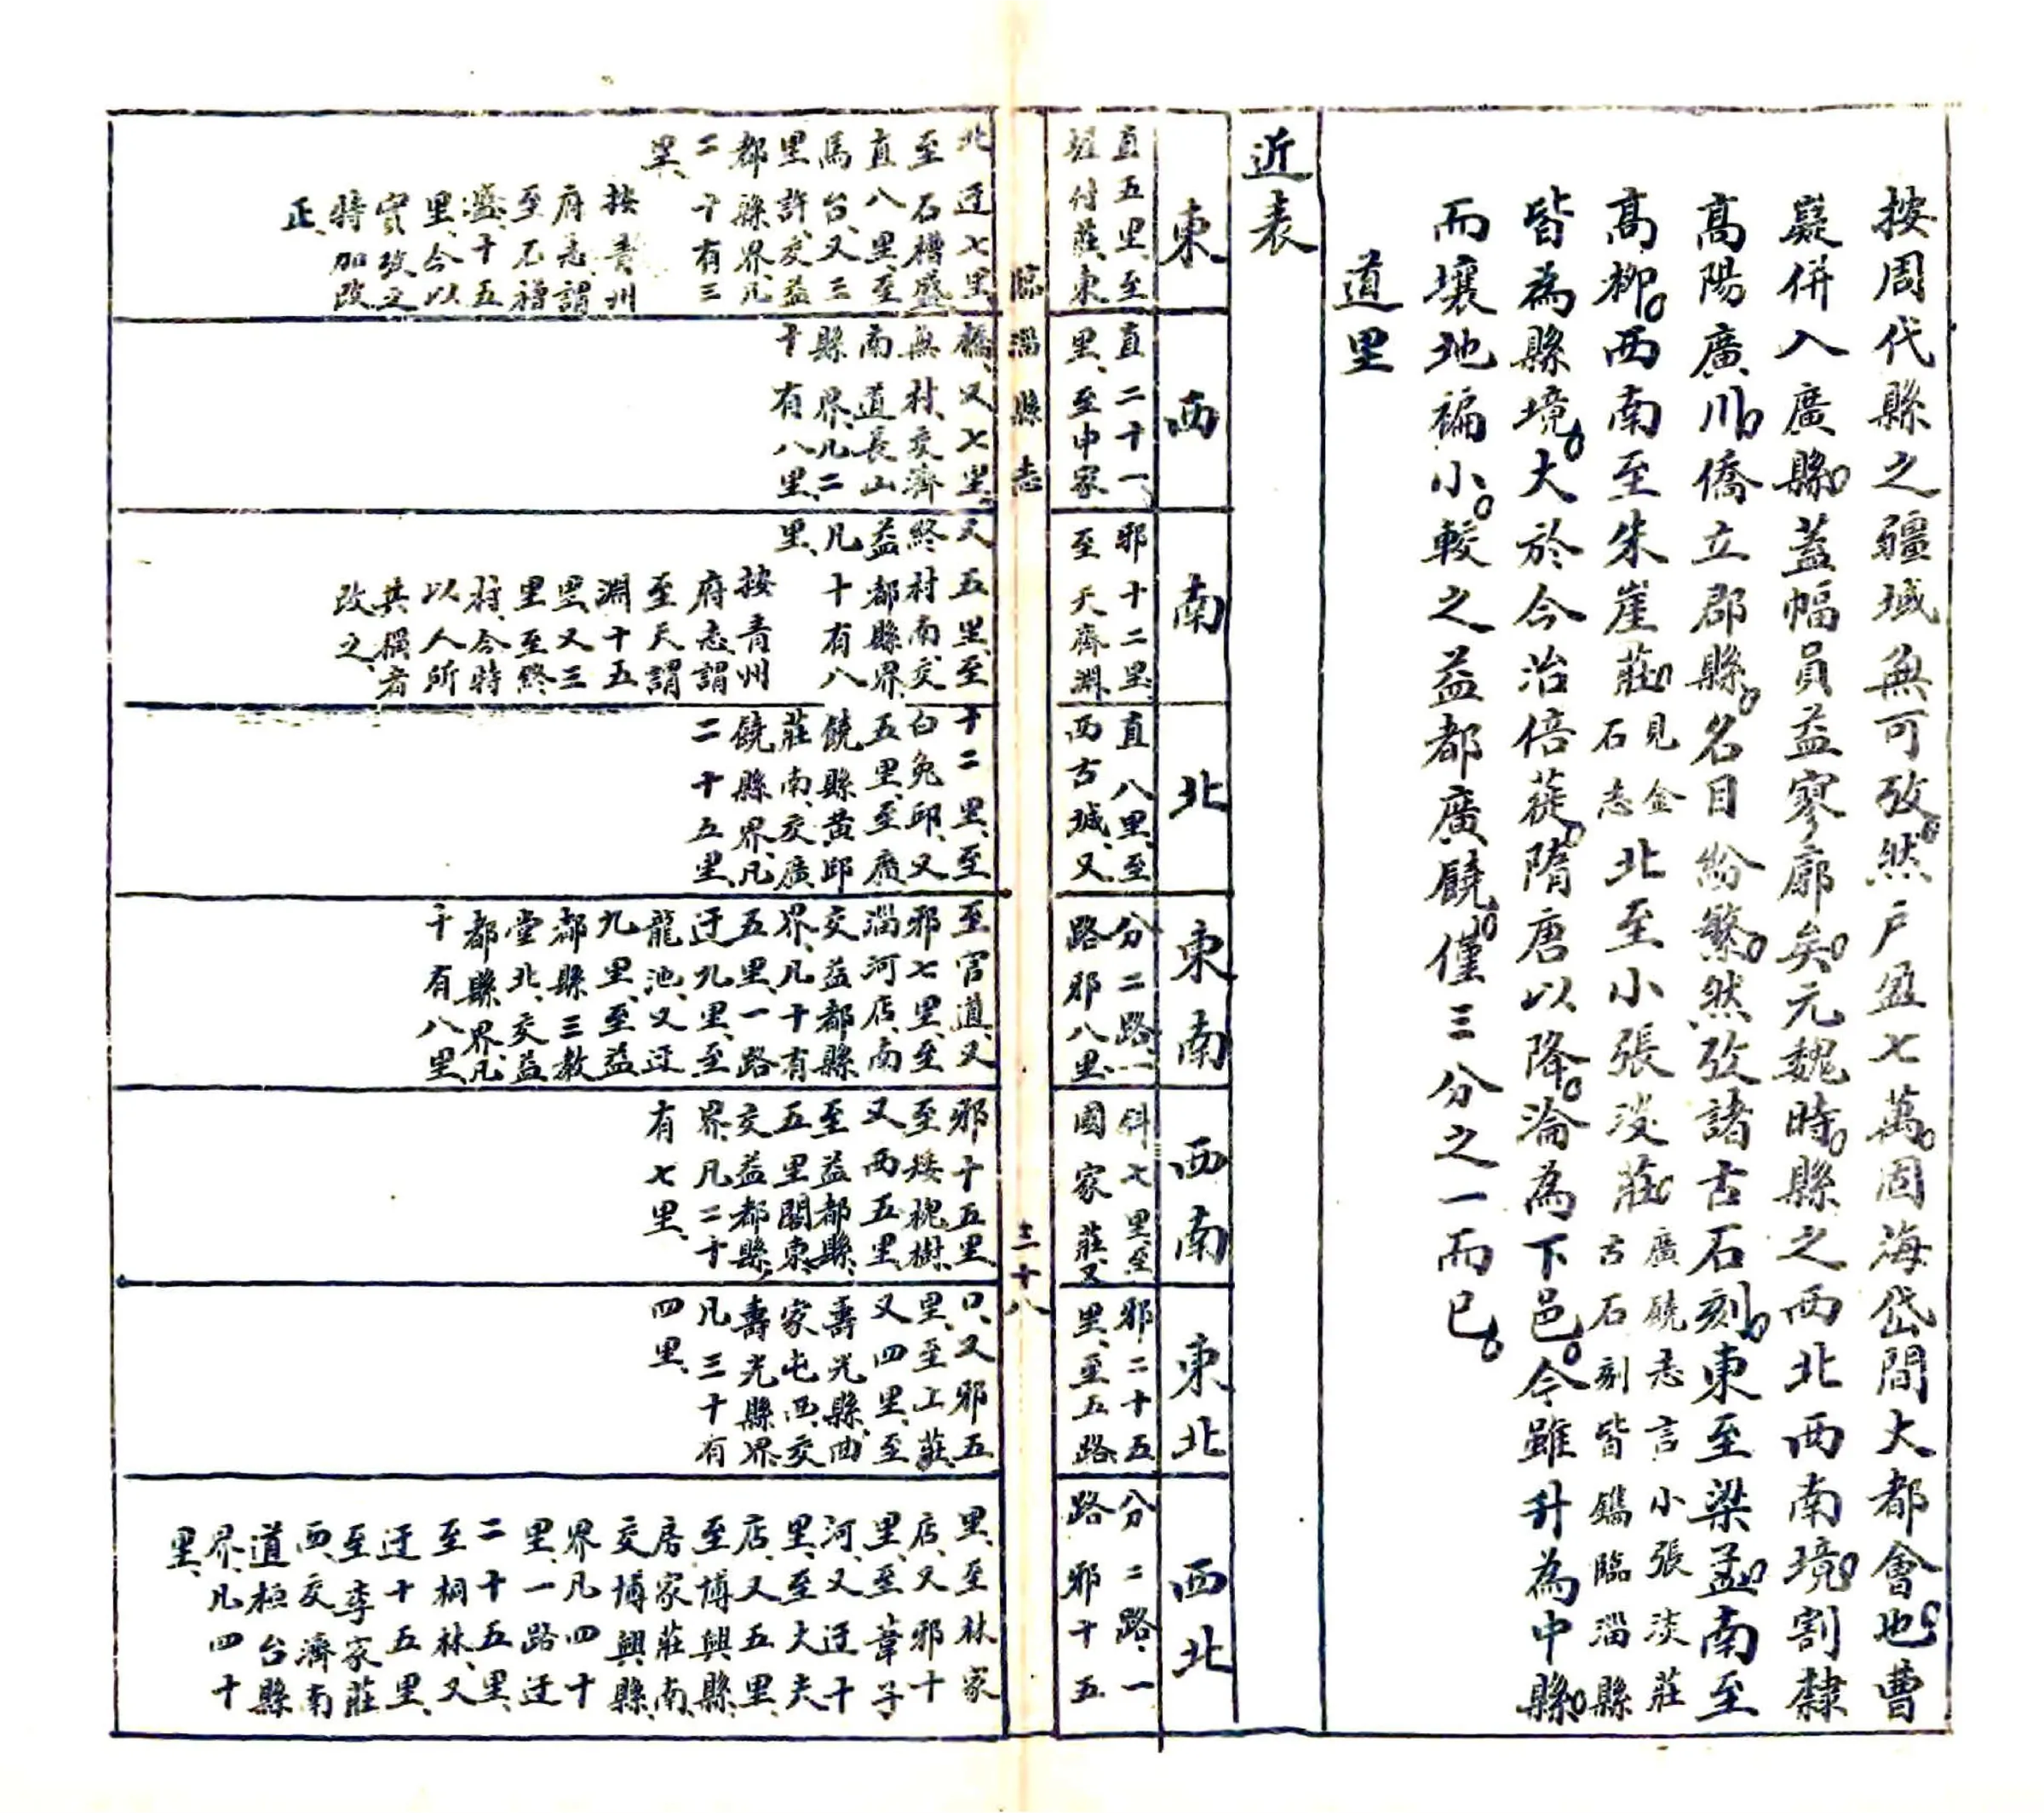 按周代縣之疆域無可攷。然戶盈七萬。固海岱間大都會也。曹
嶷併入廣縣。蓋幅員益寥廓矣。元魏時。縣之西北西南境。割隸
高陽廣川。僑立郡縣。名目紛繁。然攷諸古石刻。東至梁孟。南至
高柳。西南至朱崖莊。見金石志北至小張淡莊。廣饒志言小張淡莊古石刻皆鐫臨淄縣
皆為縣境。大於今治倍蓰。隋唐以降。淪為下邑。今雖升為中縣。
而壤地褊小。較之益都廣饒。僅三分之一而已。
道里
近表
東
直五里、至
付莊、東
北迂七里、
至石槽盛
直八里、至
馬台、又三
里許、交益
都縣界、凡
二十有三
里、
按青州
府志、謂
至石槽
盛、十五
里、今以
實攷之
特加改
正、
西
直二十一
里、至申家
橋、又七里、
無村、交濟
南道長山
縣界、凡二
十有八里、
南
邪十二里、
至天齊淵
又五里、至
終村南、交
益都縣界、
凡十有八
里、
按青州
府志謂
至天謂
淵十五
里、又三
里至終
村、今特
以人所
共稱者
改之、
北
直八里、至
西古城、又
十二里、至
白兔邱、又
五里、至廣
饒縣黃邱
莊南、交廣
饒縣界、凡
二十五里、
東南
分二路、一
路邪八里、
至官道、又
邪七里、至
淄河店、南
交益都縣
界、凡十有
五里、一路
迂九里、至
龍池、又迂
九里、至益
都縣三教
堂北、交益
都縣界、凡
十有八里、
西南
斜七里、至
國家莊、又
邪十五里、
至矮槐樹、
又西五里、
至益都縣、
五里閣東、
交益都縣、
界、凡二十
有七里、
東北
邪二十五
里、至五路
口、又邪五
里、至上莊、
又四里、至
壽光縣西
家屯西、交
壽光縣界、
凡三十有
四里、
西北
分二路、一
路邪十五
里、至林家
店、又邪十
里、至葦子
河、又迂十
里、至大夫
店、又五里、
至博興縣、
房家莊南、
交博興縣、
界、凡四十
里、一路迂
二十五里、
至桐林、又
迂十五里、
至李家莊
西、交濟南
道桓台縣
界、凡四十
里、
臨淄縣志
三十八